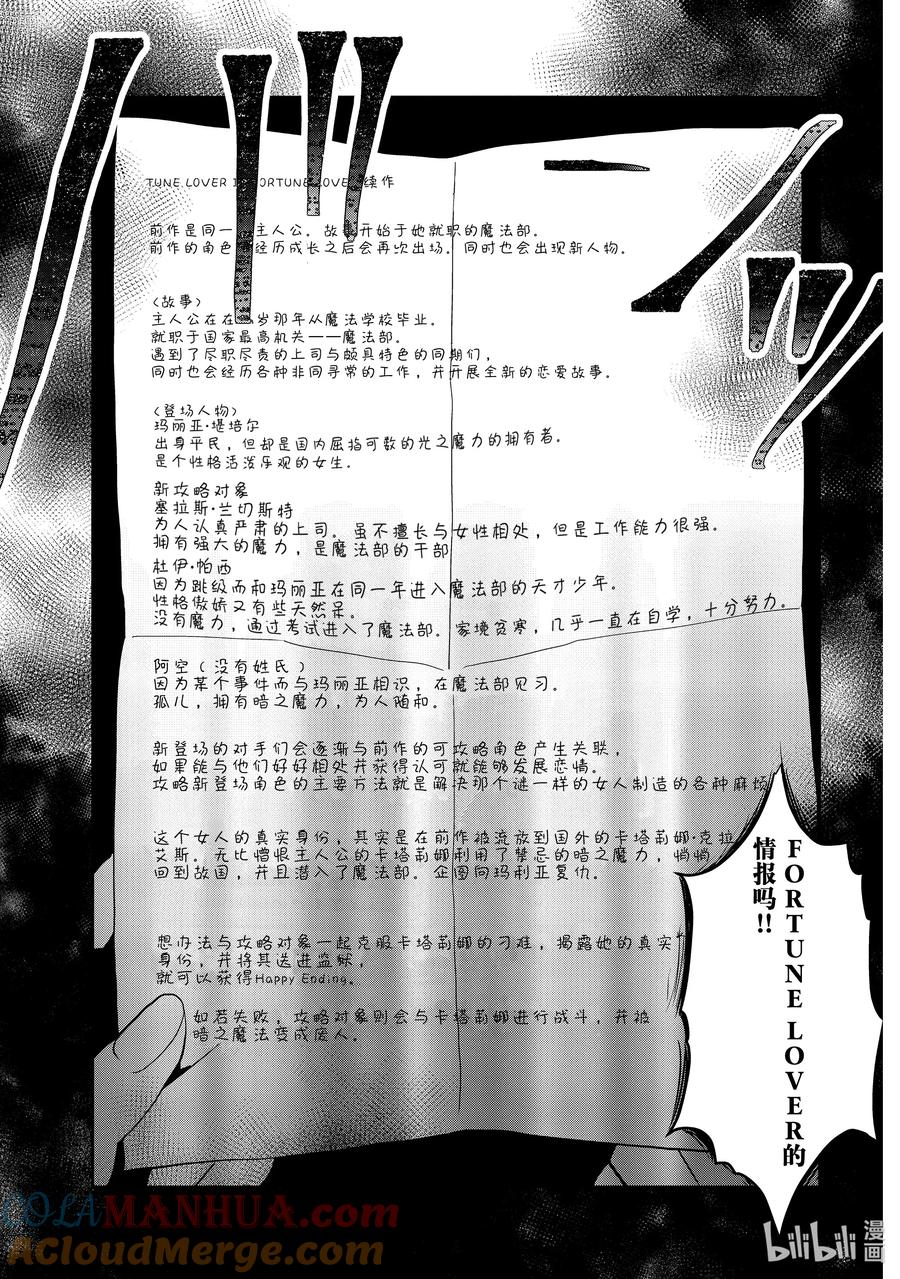 TUNE LOVER II FORTUNE LOVE 续作
前作是同一 主人公。故事开始于她就职的魔法部。
前作的角色 经历成长之后会再次出场。同时也会出现新人物。
〈故事〉
主人公在在 岁那年从魔法学校毕业。
就职于国家最高机关——魔法部。
遇到了尽职尽责的上司与颇具特色的同期们，
同时也会经历各种非同寻常的工作，并开展全新的恋爱故事。
〈登场人物〉
玛丽亚·堪培尔
出身平民，但却是国内屈指可数的光之魔力的拥有者。
是个性格活泼乐观的女生。
新攻略对象
塞拉斯·兰切斯特
为人认真严肃的上司。虽不擅长与女性相处，但是工作能力很强。
拥有强大的魔力，是魔法部的干部
杜伊·帕西
因为跳级而和玛丽亚在同一年进入魔法部的天才少年。
性格傲娇又有些天然呆。
没有魔力，通过考试进入了魔法部。家境贫寒，几乎一直在自学，十分努力。
阿空（没有姓氏）
因为某个事件而与玛丽亚相识，在魔法部见习。
孤儿，拥有暗之魔力，为人随和。
新登场的对手们会逐渐与前作的可攻略角色产生关联，
如果能与他们好好相处并获得认可就能够发展恋情。
攻略新登场角色的主要方法就是解决那个谜一样的女人制造的各种麻烦
这个女人的真实身份，其实是在前作被流放到国外的卡塔莉娜·克拉
艾斯。无比憎恨主人公的卡塔莉娜利用了禁忌的暗之魔力，悄悄
回到故国，并且潜入了魔法部。企图向玛利亚复仇。
想办法与攻略对象一起克服卡塔莉娜的刁难，揭露她的真实
身份，并将其送进监狱，
就可以获得Happy Ending。
如若失败，攻略对象则会与卡塔莉娜进行战斗，并被
暗之魔法变成废人。
FORTUNE LOVER的
情报吗!!
COLAMANHUA.com
ACloudMerge.com
bilibili 漫画